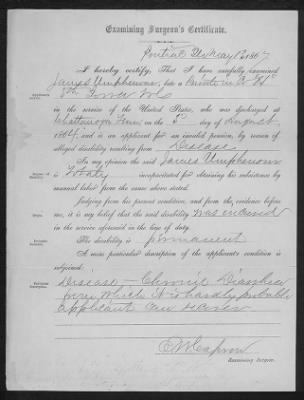 Examining Surgeon's Certificate.
Pontiac Ills May 1867
I hereby certify, That I have carefully examined
James Umphenour, late a Private in Co
Tenn Vols
in the service of the United States, who was discharged at
Chattanooga Tenn, on the 5 day of August
1864, and is an applicant for an invalid pension, by reason of
alleged disability resulting from Disease
In my opinion the said James Umphenour
is Totally incapacitated for obtaining his subsistence by
manual labor from the cause above stated.
Judging from his present condition, and from the evidence before
me, it is my belief that the said disability was incurred
in the service aforesaid in the line of duty.
The disability is permanent
A more particular description of the applicants condition is
subjoined:
Disease - Chronic Diarrhea
from which it is hardly probable
applicant can
Examining Surgeon.